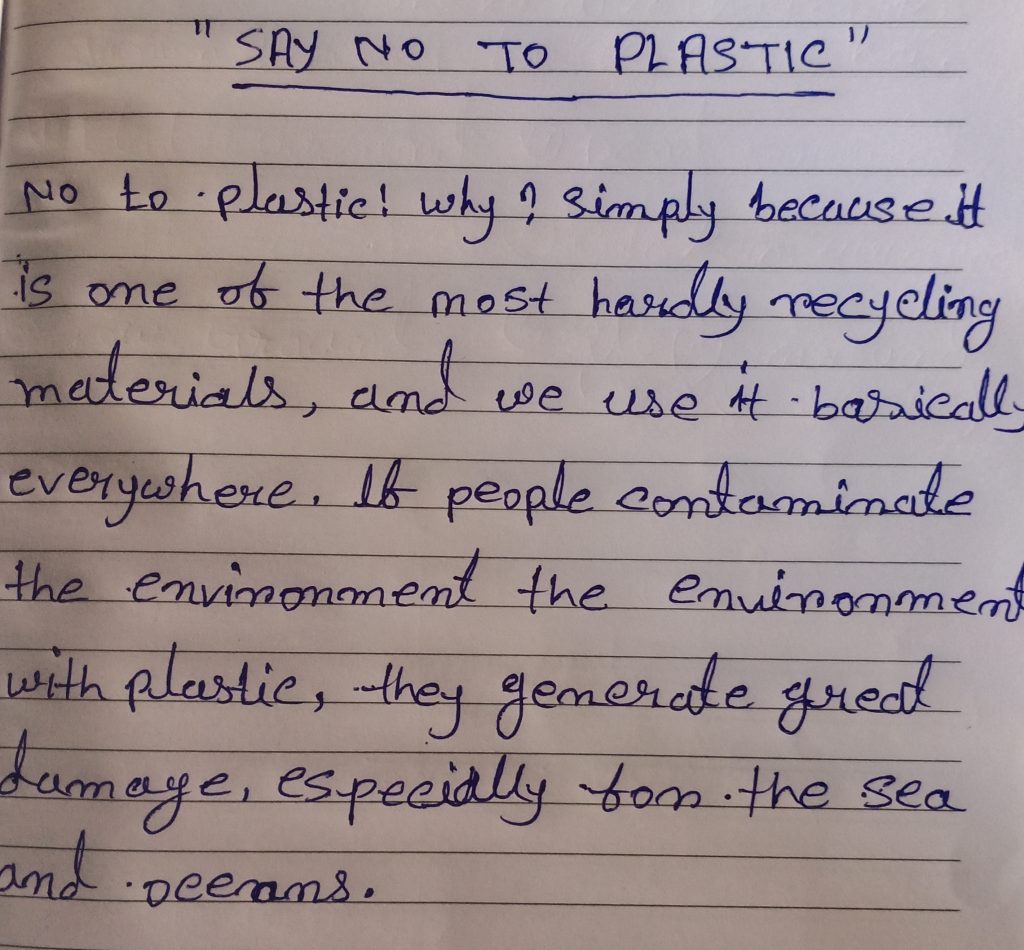 "SAY NO TO PLASTIC"
No to plastic! why? simply because it
is one of the most hardly recycling
materials, and we use it basically
everywhere. If people contaminate
the environment the environment
with plastic, they generate great
damage, especially for the sea
and oceans.